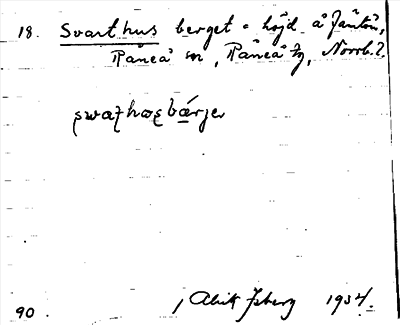 18. Svarthusberget = höjd å Jäntön,
Råneå sn, Råneå tg, Norrb. l.
swaʈhosbárjeɹ
90. Alrik Isberg 1934.